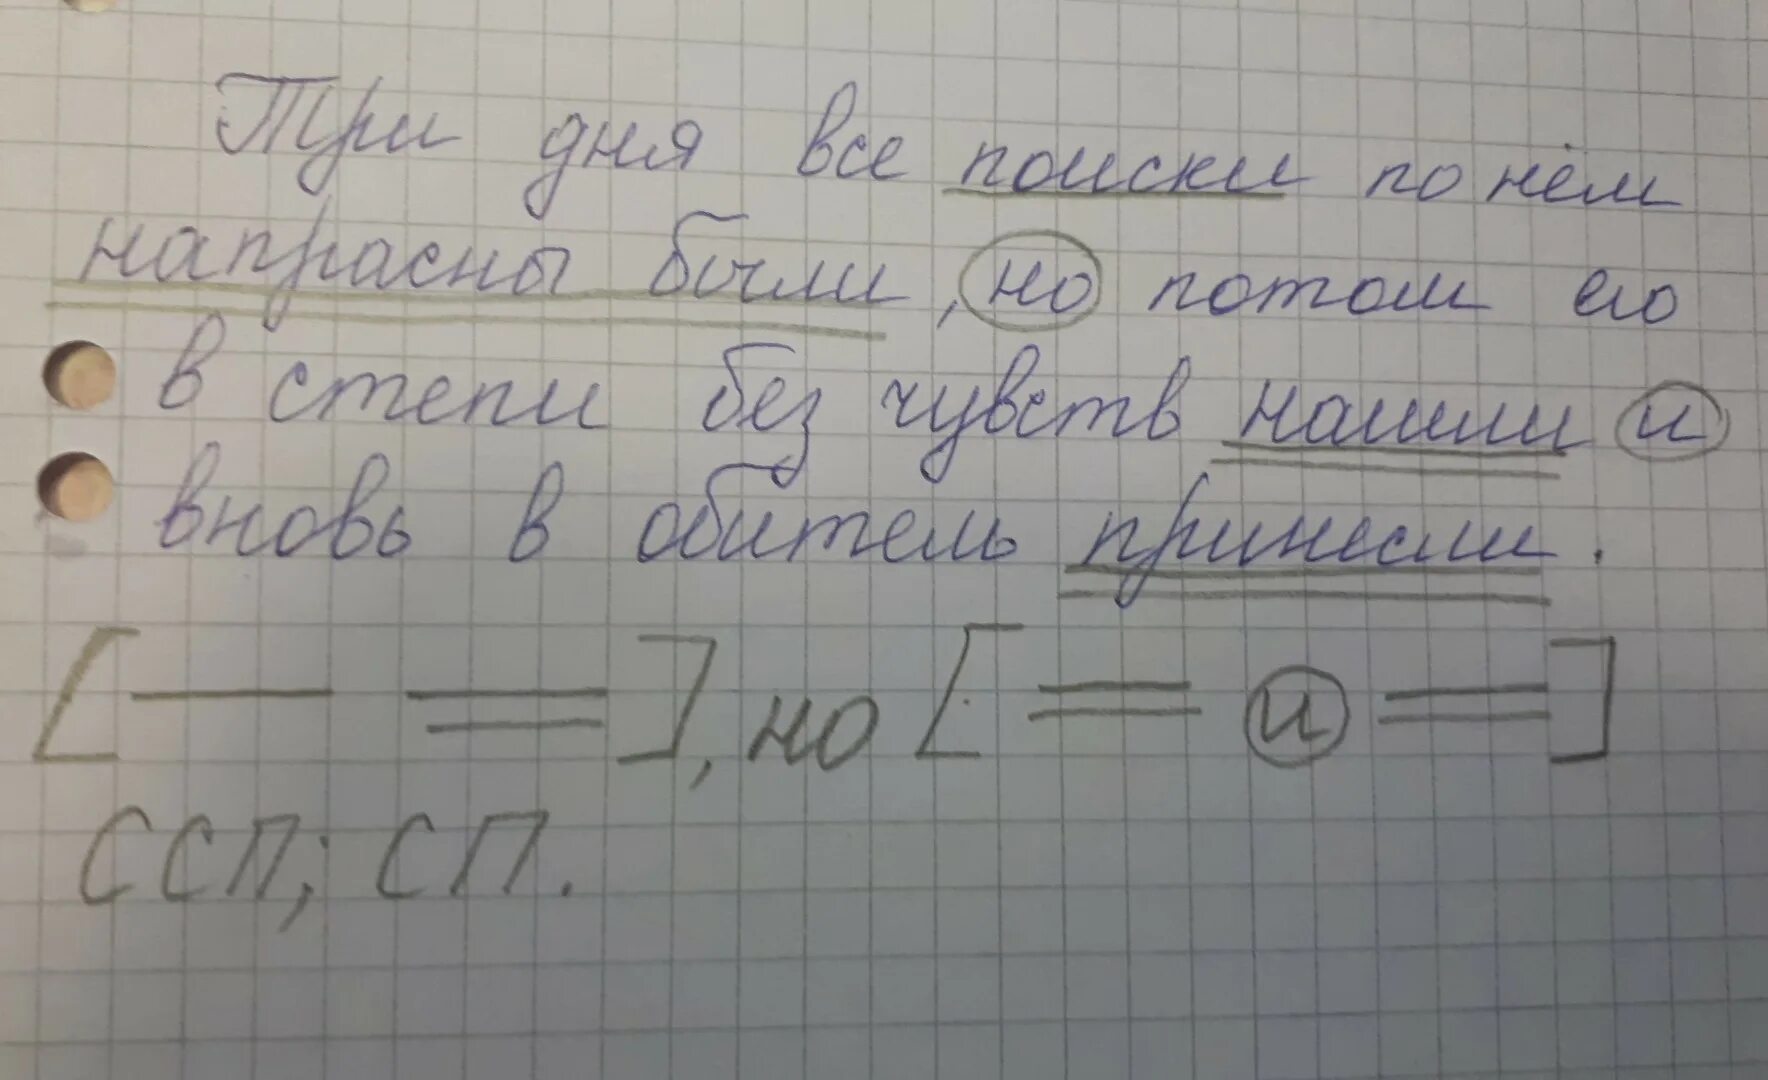 Три дня все поиски по нём
напрасны были, но потом его
в степи без чувств нашли и
вновь в обитель принесли.
[— =], но [= и =]
ССП; СП.